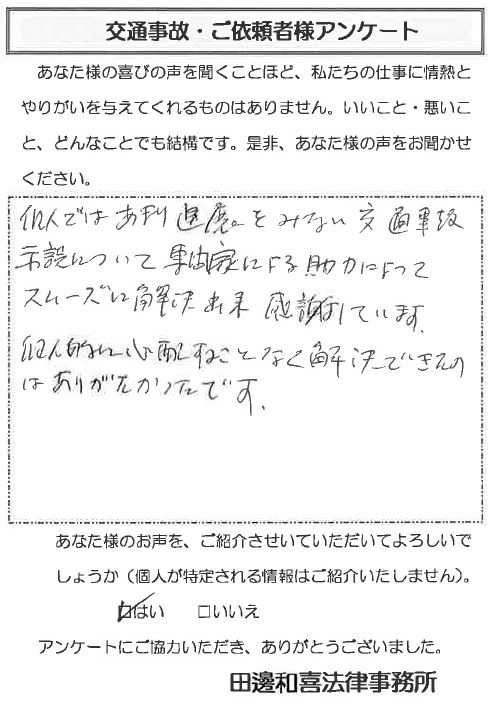 交通事故・ご依頼者様アンケート
あなた様の喜びの声を聞くことほど、私たちの仕事に情熱と
やりがいを与えてくれるものはありません。いいこと・悪いこ
と、どんなことでも結構です。是非、あなた様の声をお聞かせ
ください。
個人ではあまり進展をみない交通事故
示談について専門家による助力によって
スムーズに解決出来感謝しています。
個人的に心配することなく解決できたの
はありがたかったです。
あなた様のお声を、ご紹介させていただいてよろしいで
しょうか（個人が特定される情報はご紹介いたしません）。
☑はい □いいえ
アンケートにご協力いただき、ありがとうございました。
田邊和喜法律事務所